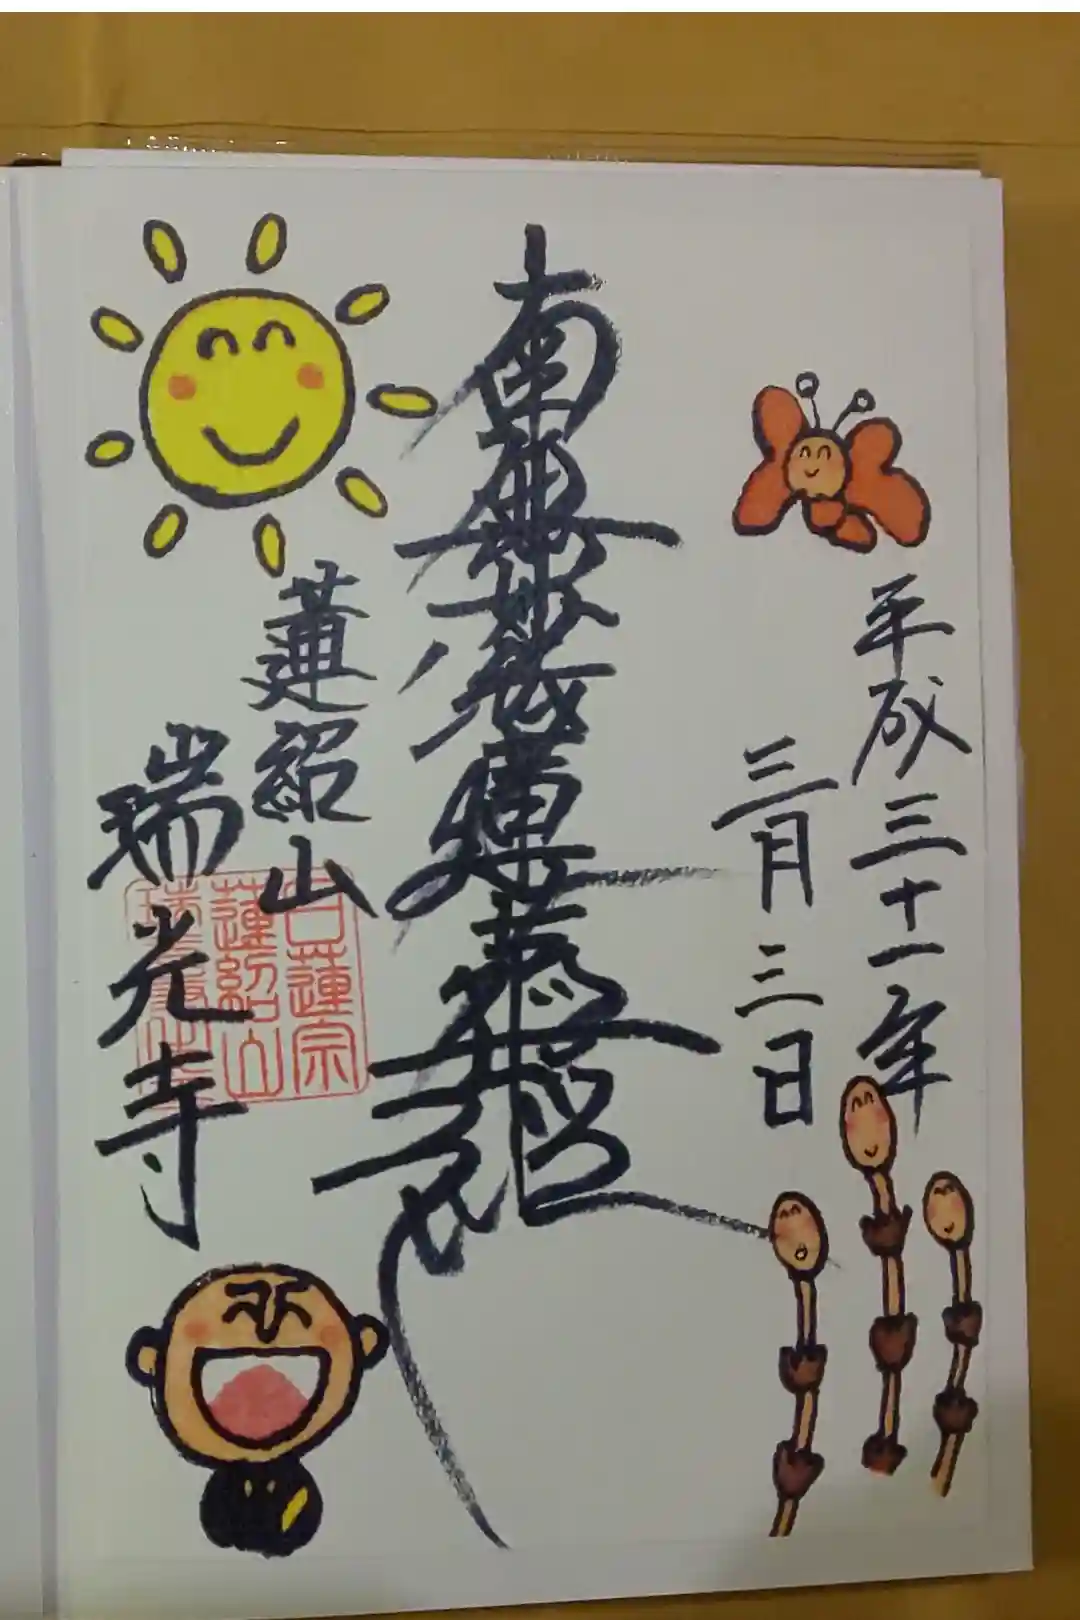 平成三十一年
三月三日
南無妙法蓮華經
蓮紹山
瑞光寺
日蓮宗
蓮紹山